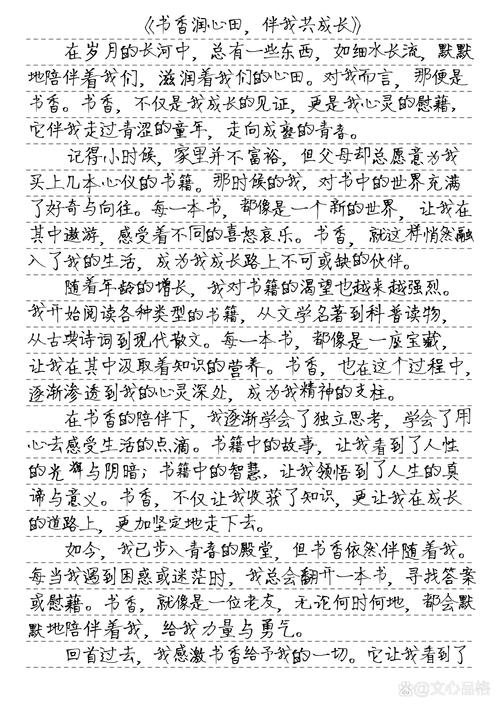 《书香润心田，伴我共成长》
在岁月的长河中，总有一些东西，如细水长流，默默
地陪伴着我们，滋润着我们的心田。对我而言，那便是
书香。书香，不仅是我成长的见证，更是我心灵的慰藉，
它伴我走过青涩的童年，走向成熟的青春。
记得小时候，家里并不富裕，但父母却总愿意为我
买上几本心仪的书籍。那时候的我，对书中的世界充满
了好奇与向往。每一本书，都像是一个新的世界，让我在
其中遨游，感受着不同的喜怒哀乐。书香，就这样悄然融
入了我的生活，成为我成长路上不可或缺的伙伴。
随着年龄的增长，我对书籍的渴望也越来越强烈。
我开始阅读各种类型的书籍，从文学名著到科普读物，
从古典诗词到现代散文。每一本书，都像是一座宝藏，
让我在其中汲取着知识的营养。书香，也在这个过程中，
逐渐渗透到我的心灵深处，成为我精神的支柱。
在书香的陪伴下，我逐渐学会了独立思考，学会了用
心去感受生活的点滴。书籍中的故事，让我看到了人性
的光辉与阴暗；书籍中的智慧，让我领悟到了人生的真
谛与意义。书香，不仅让我收获了知识，更让我在成长
的道路上，更加坚定地走下去。
如今，我已步入青春的殿堂，但书香依然伴随着我。
每当我遇到困惑或迷茫时，我总会翻开一本书，寻找答案
或慰藉。书香，就像是一位老友，无论何时何地，都会默
默地陪伴着我，给我力量与勇气。
回首过去，我感激书香给予我的一切。它让我看到了
@文心品格